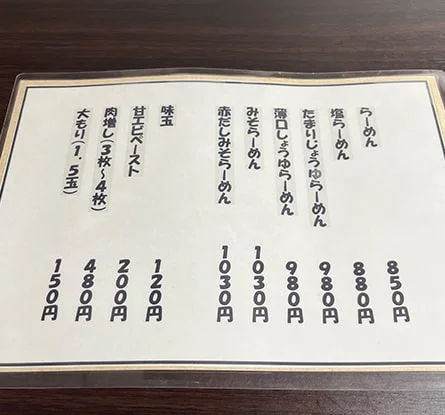 らーめん 850円
塩らーめん 880円
たまりじょうゆらーめん 980円
薄口しょうゆらーめん 980円
みそらーめん 1030円
赤だしみそらーめん 1030円
味玉 120円
甘エビペースト 200円
肉増し(3枚～4枚) 480円
大もり(1.5玉) 150円